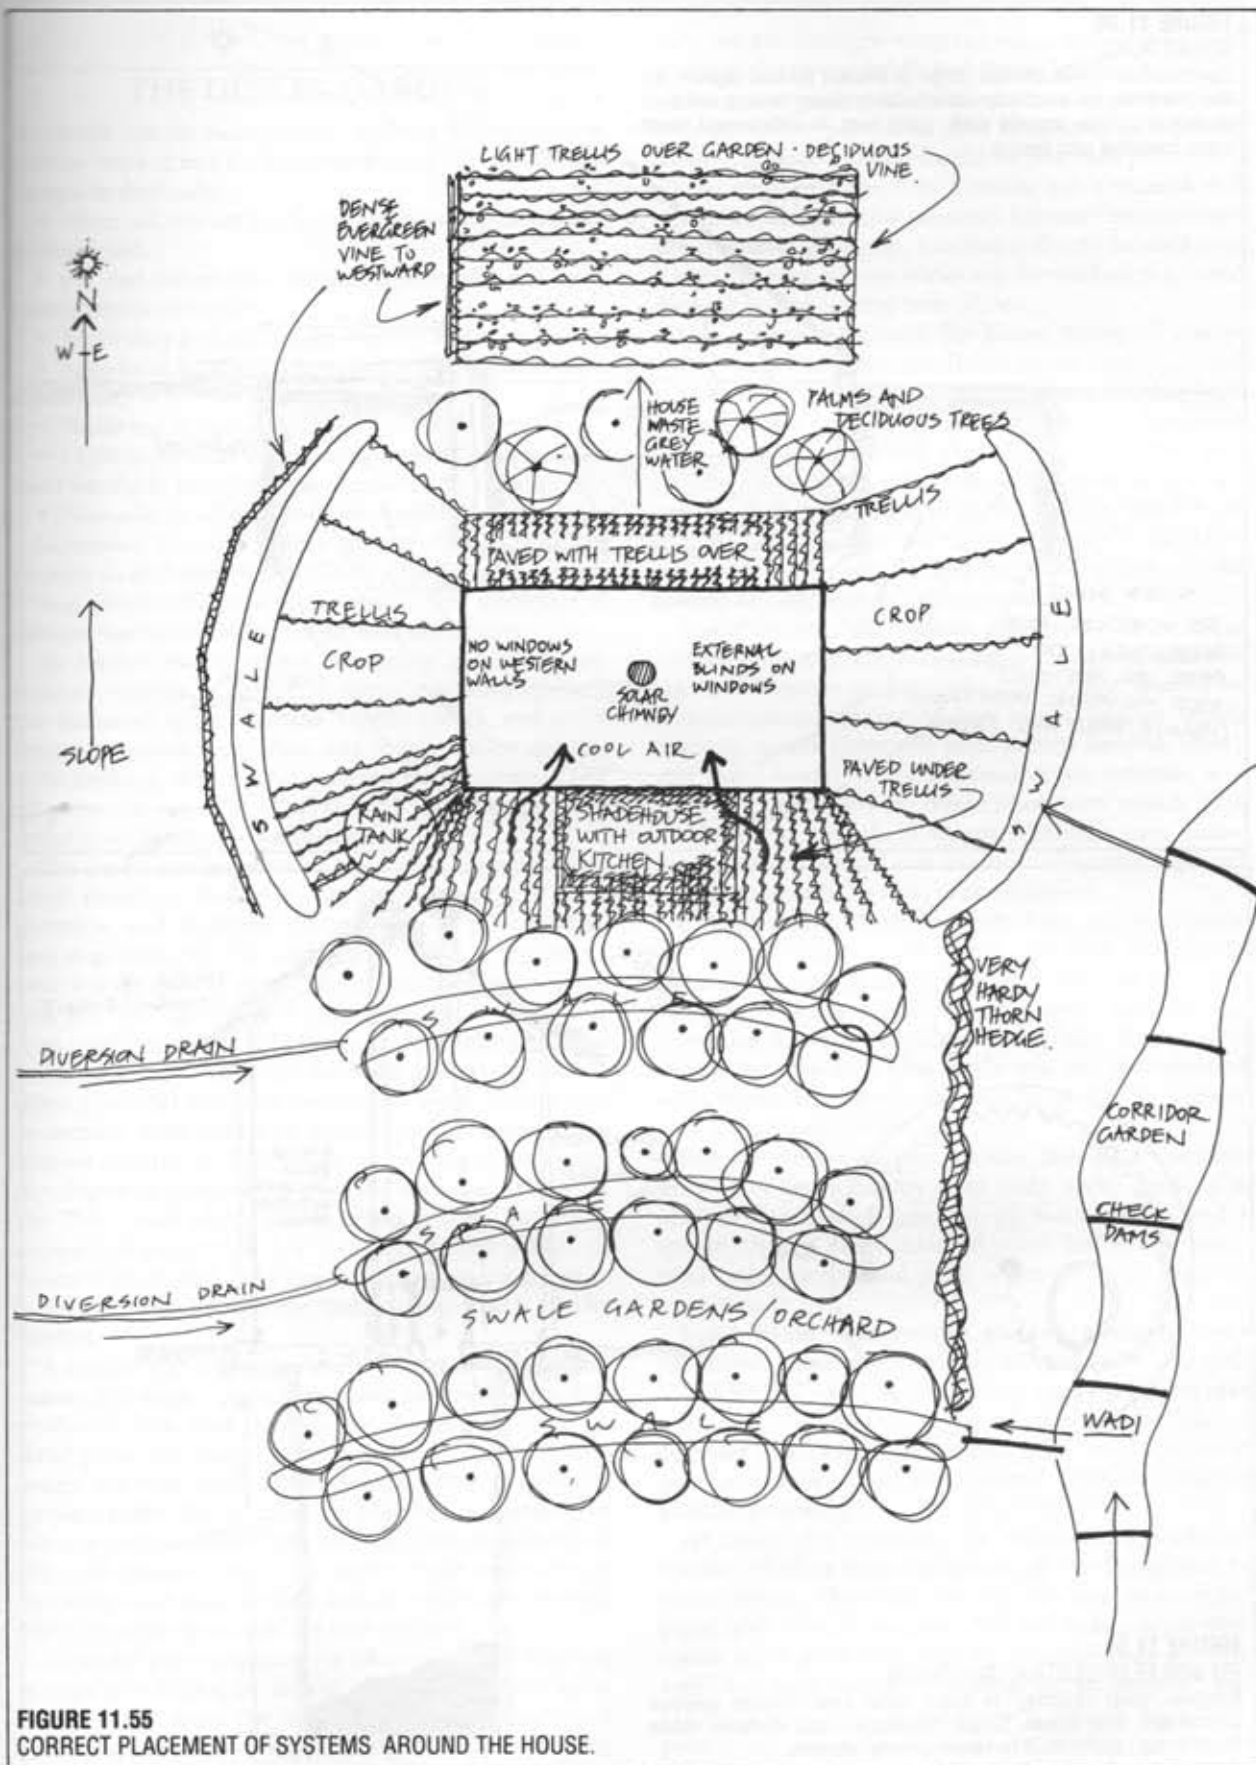 LIGHT TRELLIS OVER GARDEN · DECIDUOUS
VINE
DENSE
EVERGREEN
VINE TO
WESTWARD
N
W E
HOUSE
WASTE
GREY
WATER
PALMS AND
DECIDUOUS TREES
TRELLIS
PAVED WITH TRELLIS OVER
SWALE
TRELLIS
CROP
NO WINDOWS
ON WESTERN
WALLS
SOLAR
CHIMNEY
EXTERNAL
BLINDS ON
WINDOWS
CROP
SWALE
SLOPE
COOL AIR
PAVED UNDER
TRELLIS
RAIN
TANK
SHADEHOUSE
WITH OUTDOOR
KITCHEN
VERY
HARDY
THORN
HEDGE.
SWALE
DIVERSION DRAIN
CORRIDOR
GARDEN
SWALE
CHECK
DAMS
DIVERSION DRAIN
SWALE GARDENS/ORCHARD
SWALE
WADI
FIGURE 11.55
CORRECT PLACEMENT OF SYSTEMS AROUND THE HOUSE.